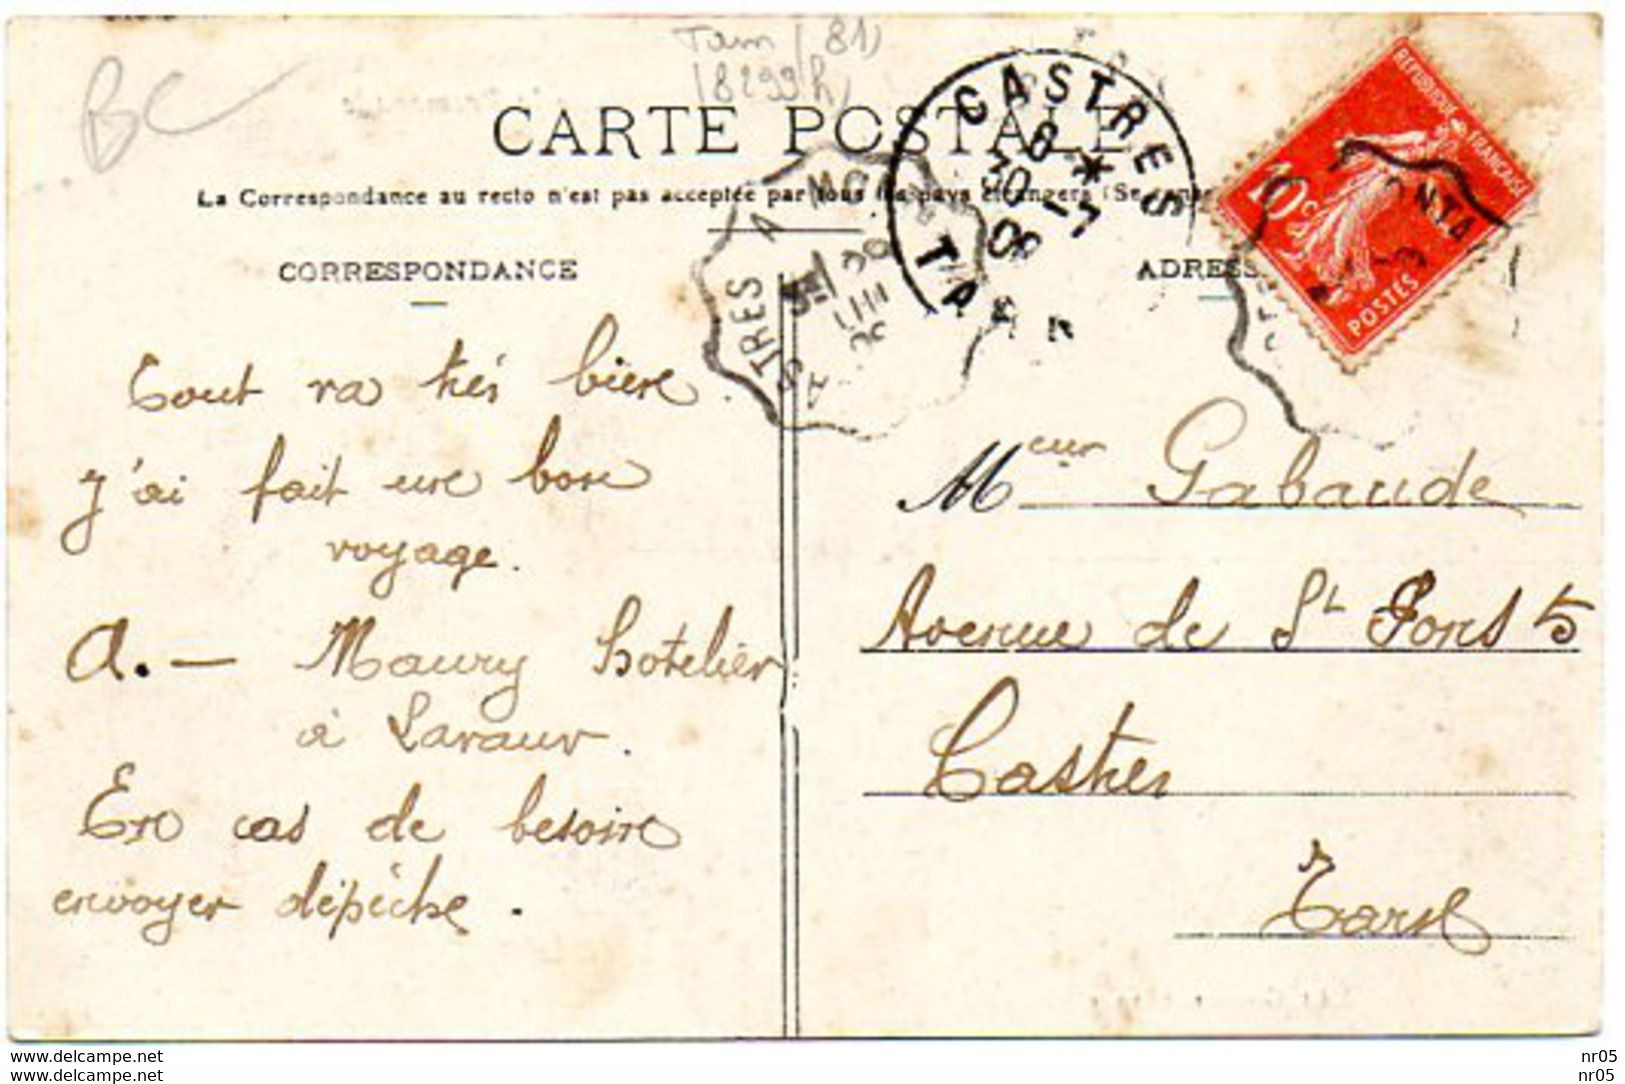 BC
Tarn (81)
(8299h)
CARTE POSTALE
La Correspondance au recto n'est pas acceptée par tous les pays étrangers (Se rense
CORRESPONDANCE
ADRESS
CASTRES
8 *
30 -7
08
TARN
STRES A MO
RÉPUBLIQUE FRANÇAISE
10c
POSTES
ONTA
Tout va très bien.
J'ai fait une bon
voyage.
A. — Maury hotelier
à Lavaur.
En cas de besoin
envoyer dépêche.
Mcur Gabaude
Avenue de St Pons 5
Castres
Tarn
www.delcampe.net
www.delcampe.net
nr05
nr05